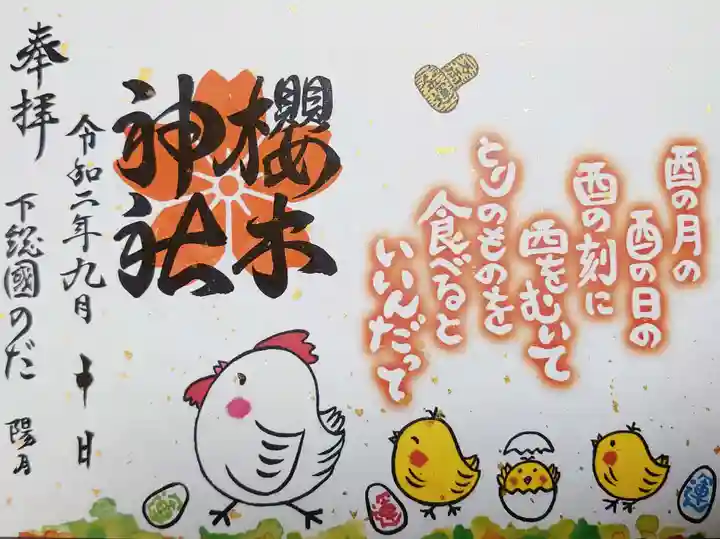 酉の月の
酉の日の
酉の刻に
酉をむいて
とりのものを
食べると
いいんだって
櫻木
神社
奉拝
令和二年九月十日
下総國のだ 陽月
運
運